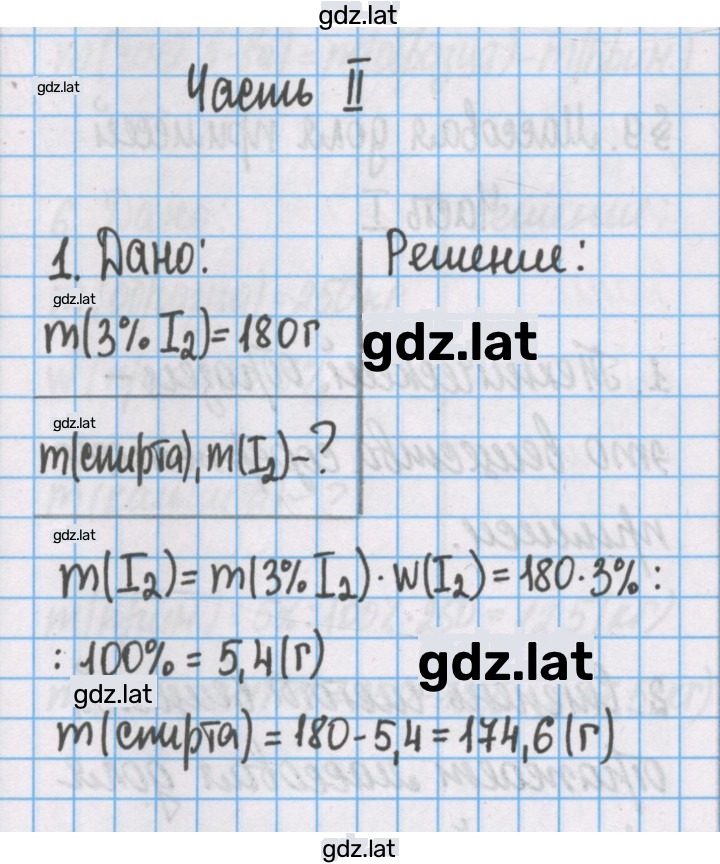 gdz.lat
gdz.lat
Часть II
1. Дано:
Решение:
gdz.lat
m(3% I₂)=180г
gdz.lat
gdz.lat
m(спирта), m(I₂)-?
gdz.lat
m(I₂)= m(3% I₂) · w(I₂) = 180 · 3% :
: 100% = 5,4 (г)
gdz.lat
gdz.lat
m(спирта) = 180-5,4 = 174,6 (г)
gdz.lat